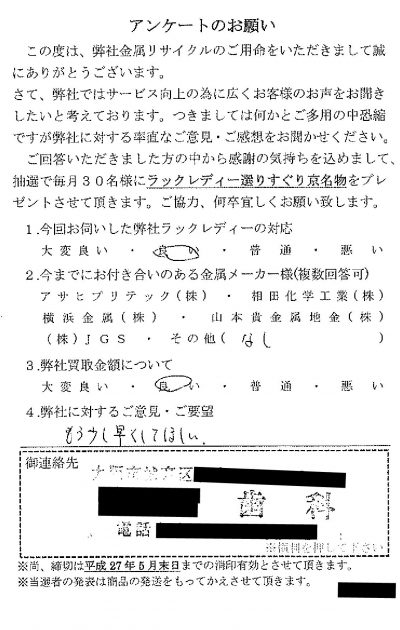 アンケートのお願い
この度は、弊社金属リサイクルのご用命をいただきまして誠
にありがとうございます。
さて、弊社ではサービス向上の為に広くお客様のお声をお聞き
したいと考えております。つきましては何かとご多用の中恐縮
ですが弊社に対する率直なご意見・ご感想をお聞かせください。
ご回答いただきました方の中から感謝の気持ちを込めまして、
抽選で毎月30名様にラックレディー選りすぐり京名物をプレ
ゼントさせて頂きます。ご協力、何卒宜しくお願い致します。
1.今回お伺いした弊社ラックレディーの対応
大変良い ・ 良い ・ 普通 ・ 悪い
2.今までにお付き合いのある金属メーカー様(複数回答可)
アサヒプリテック(株) ・ 相田化学工業(株)
横浜金属(株) ・ 山本貴金属地金(株)
(株)JGS ・ その他( なし )
3.弊社買取金額について
大変良い ・ 良い ・ 普通 ・ 悪い
4.弊社に対するご意見・ご要望
もう少し早くしてほしい。
御連絡先
歯科
電話
※個印を押して下さい
※尚、締切は平成27年5月末日までの消印有効とさせて頂きます。
※当選者の発表は商品の発送をもってかえさせて頂きます。